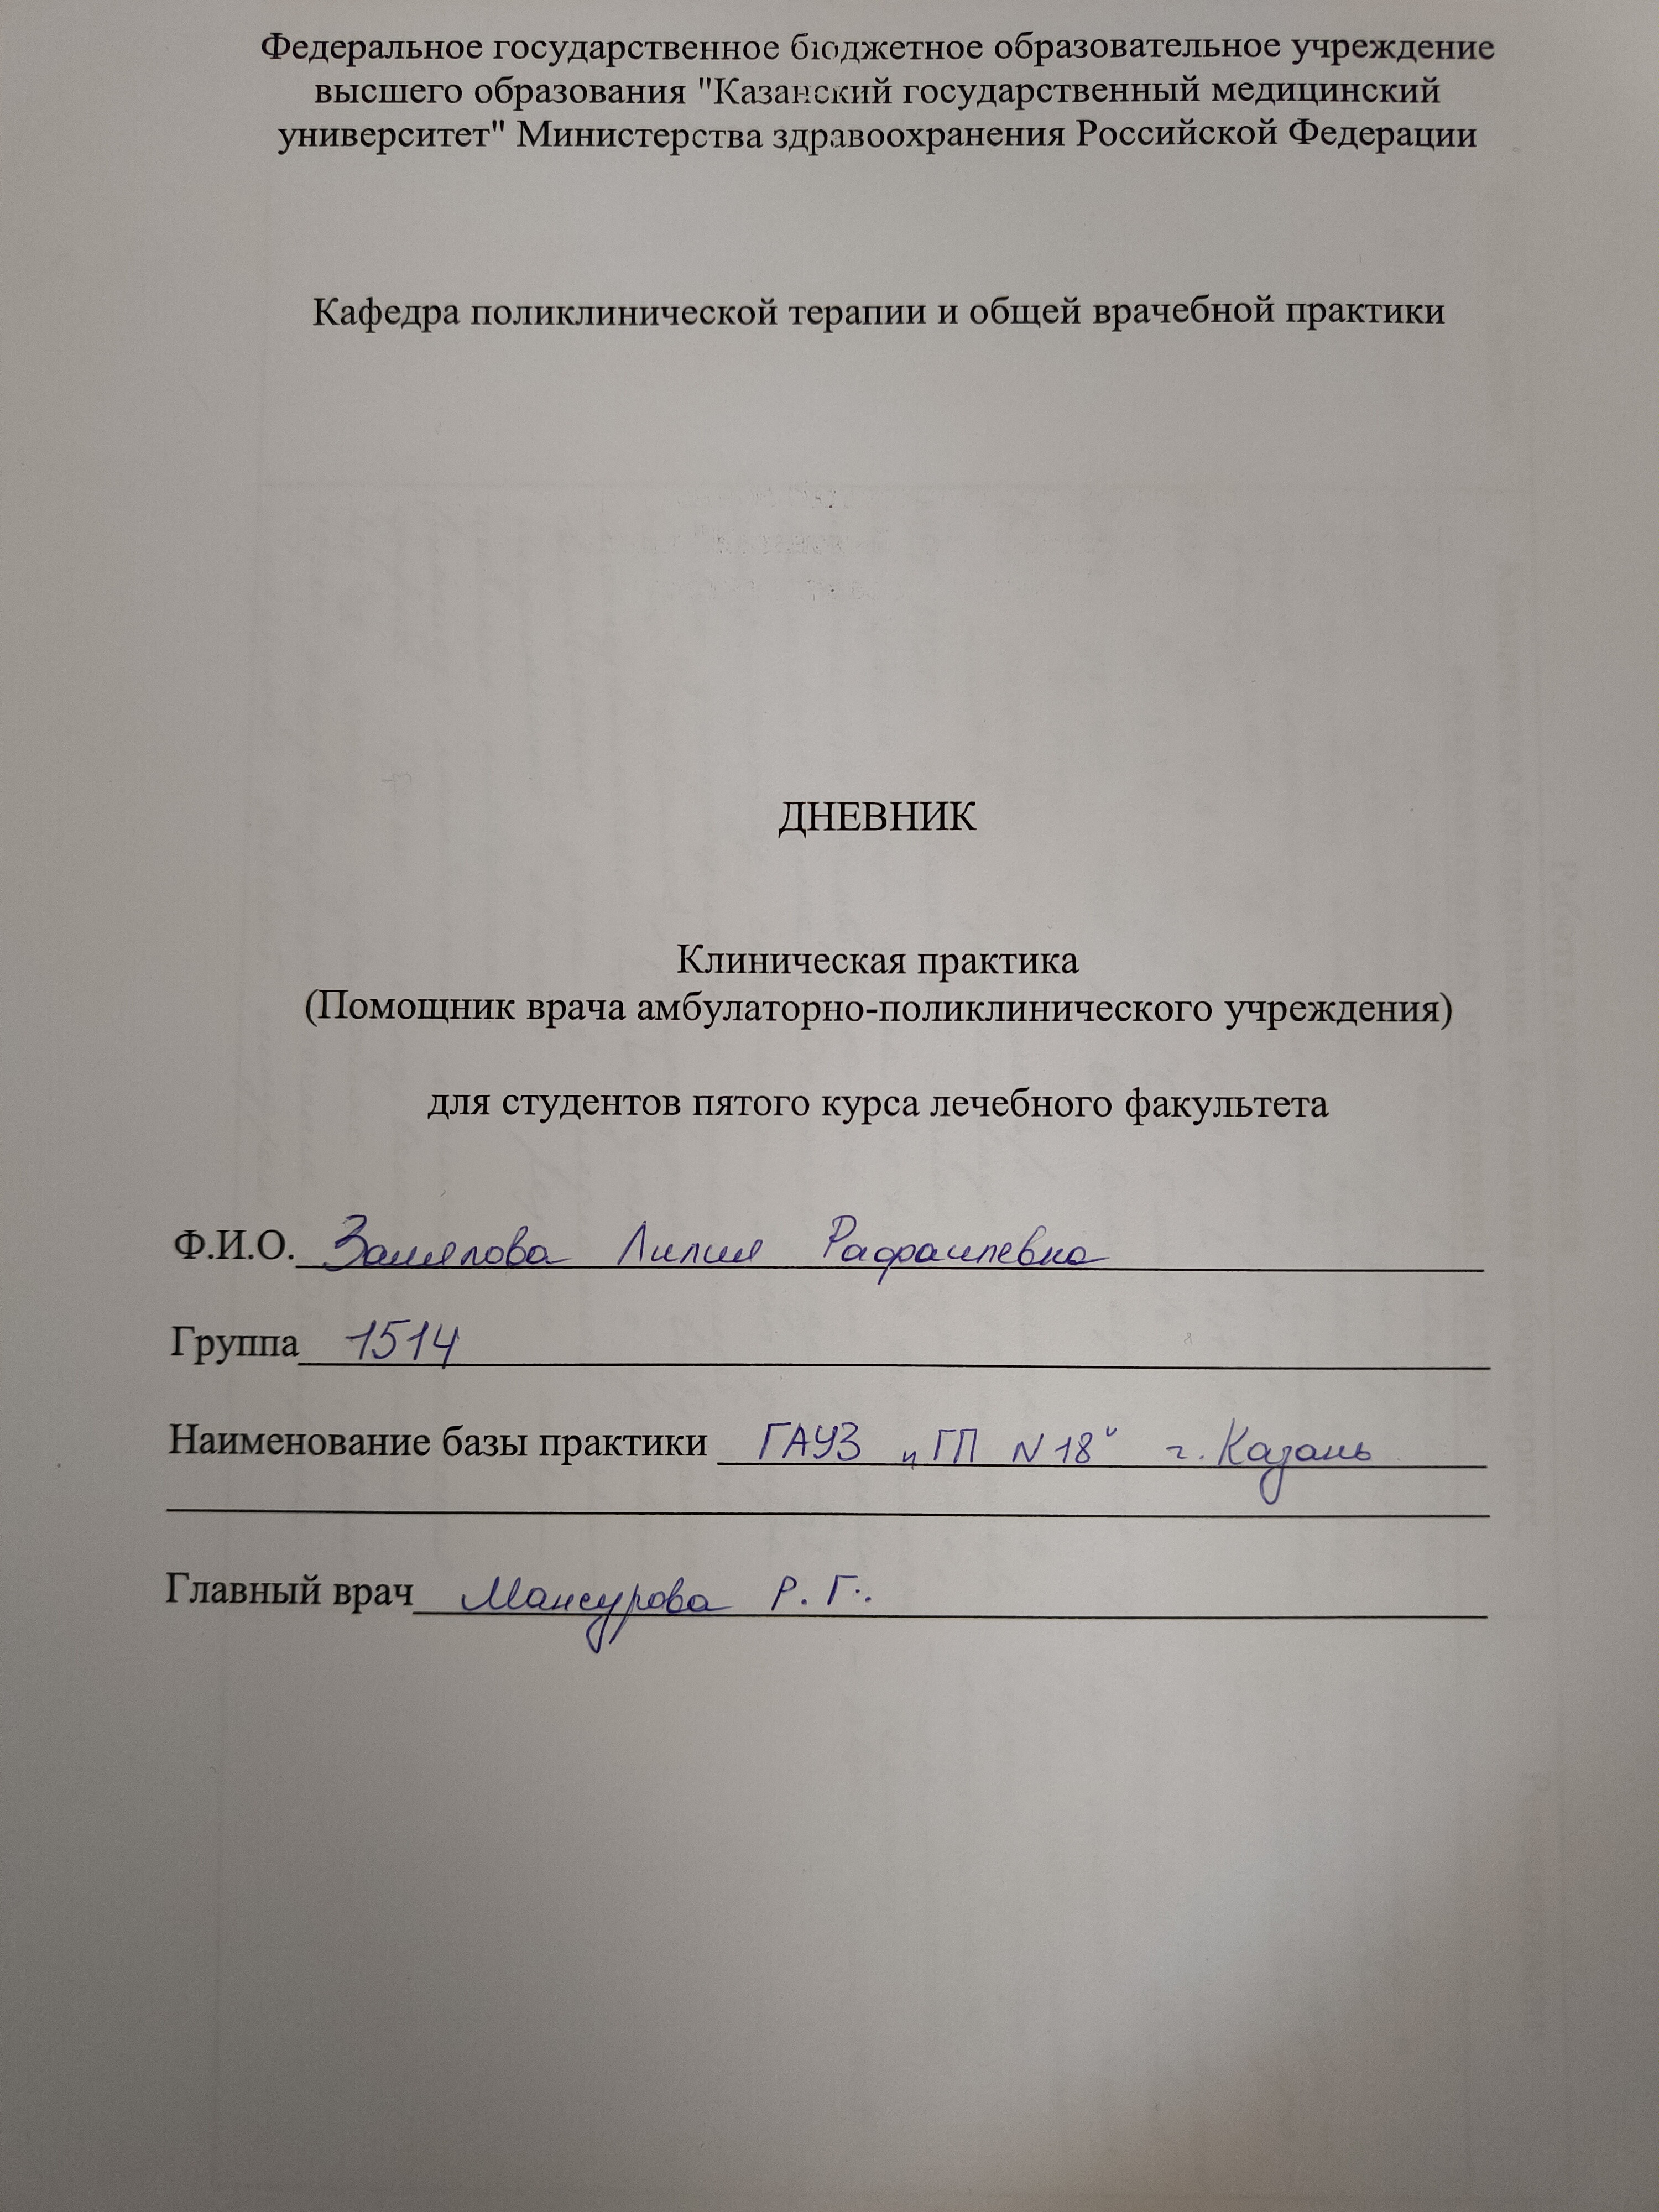 Федеральное государственное бюджетное образовательное учреждение
высшего образования "Казанский государственный медицинский
университет" Министерства здравоохранения Российской Федерации
Кафедра поликлинической терапии и общей врачебной практики
ДНЕВНИК
Клиническая практика
(Помощник врача амбулаторно-поликлинического учреждения)
для студентов пятого курса лечебного факультета
Ф.И.О. Лилия Рафаилевна
Группа 1514
Наименование базы практики ГАУЗ „ГП N18" г. Казань
Главный врач Мансурова Р. Г.